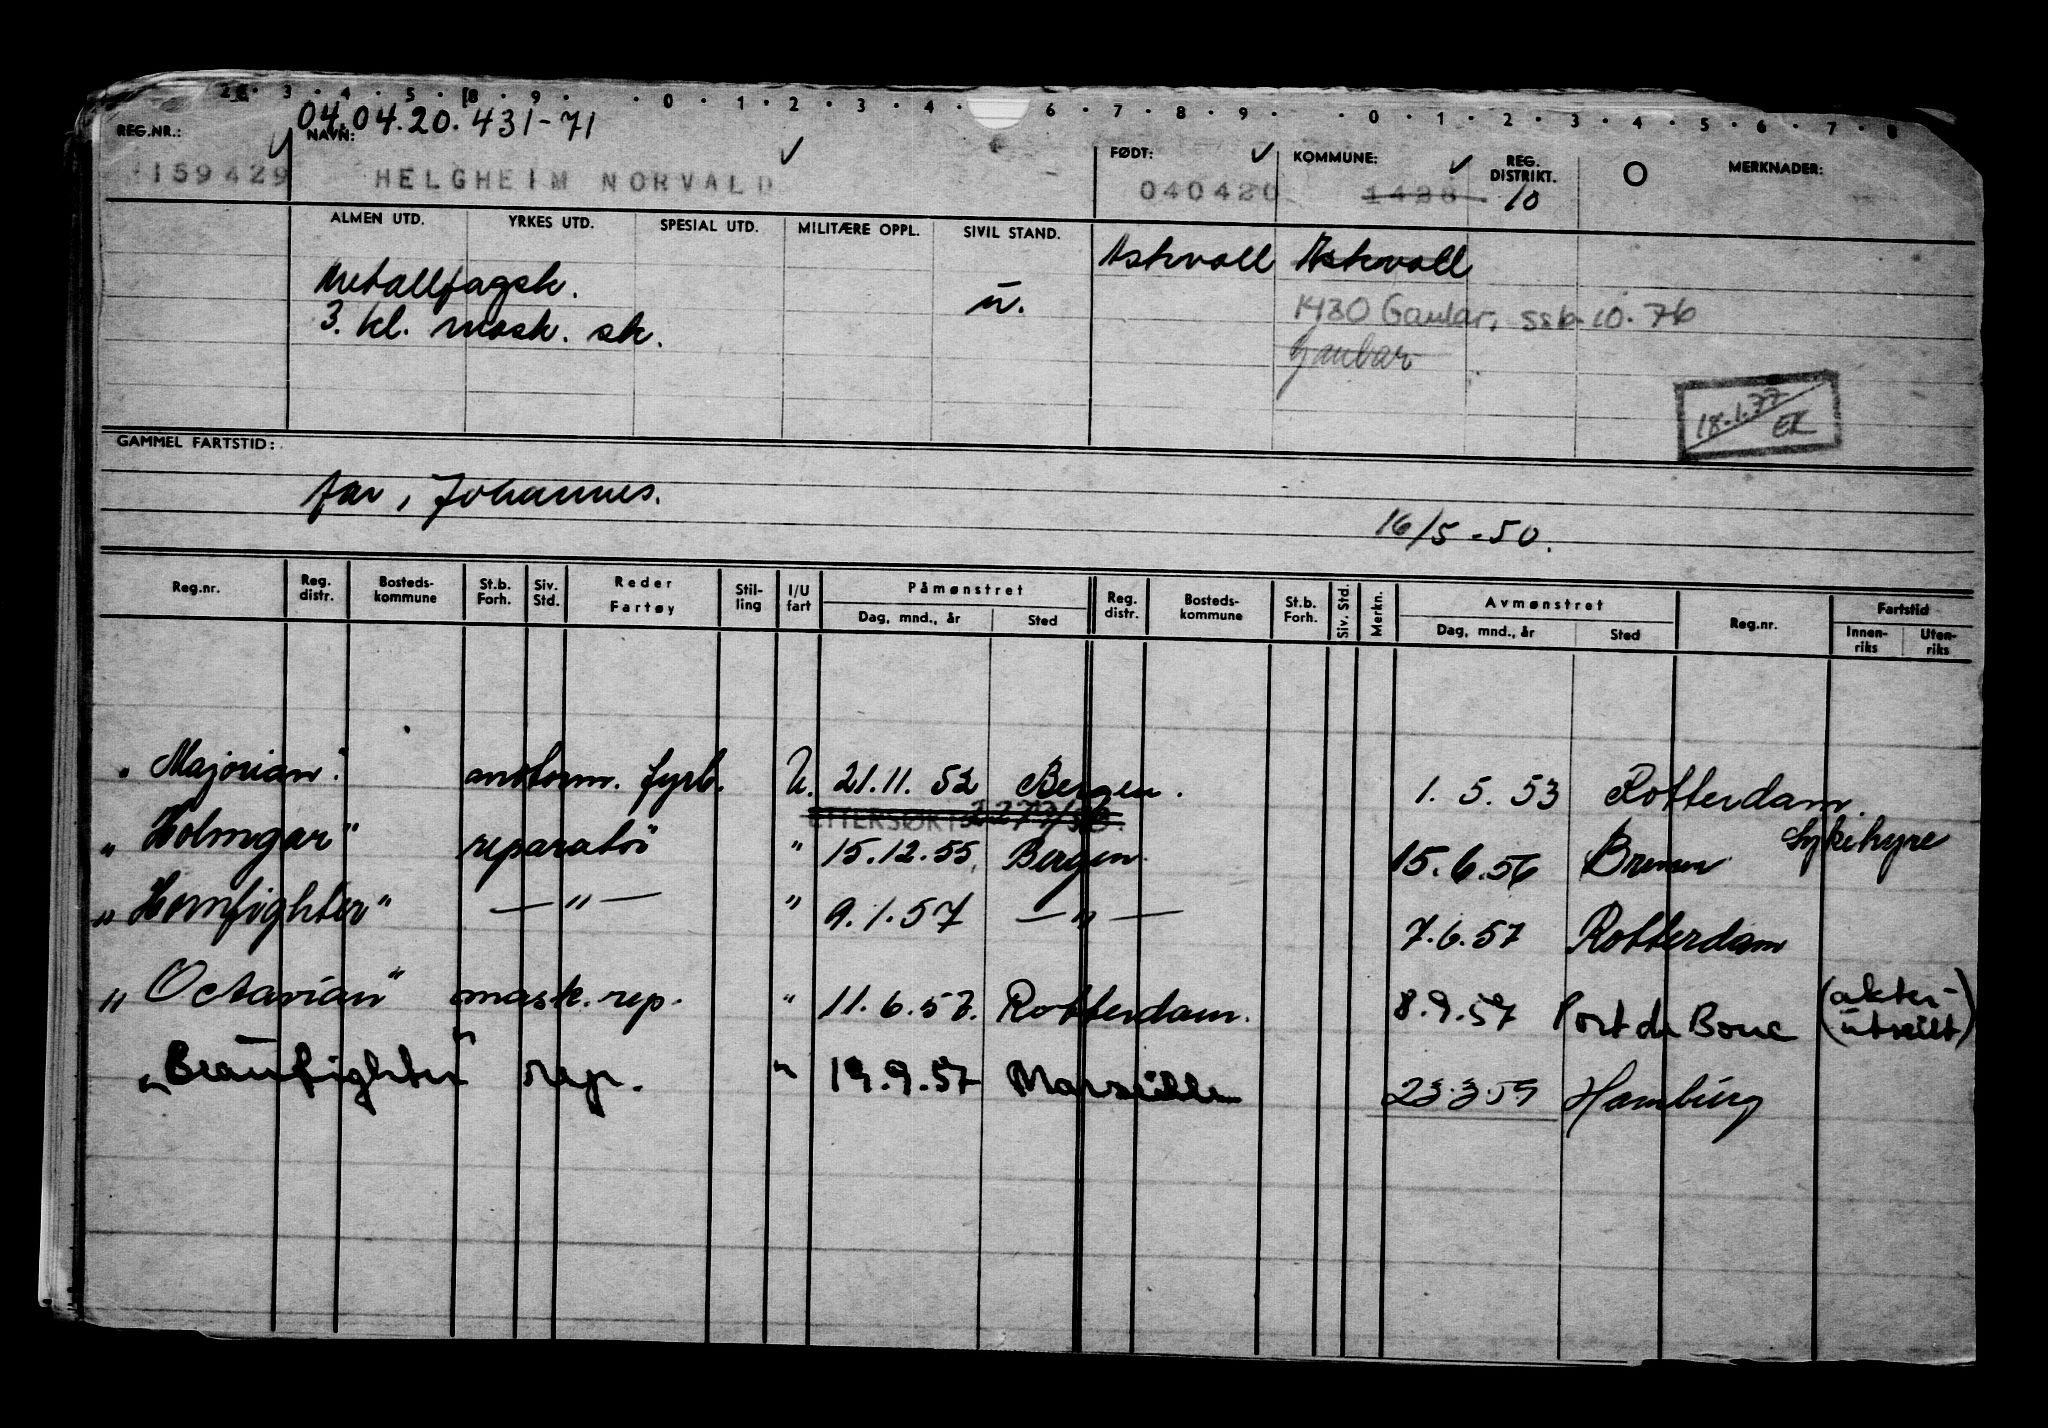 2 · 3 · 4 · 5 · 8 · 9 · · 0 · 1 · 2 · 3 · 4 · 6 · 7 · 8 · 9 · · 0 · 1 · 2 · 3 · 4 · 5 · 6 · 7 · 8
04.04.20.431-71
REG.NR.: NAVN: FØDT: KOMMUNE: REG. DISTRIKT. O MERKNADER:
159429 HELGHEIM NORVALD 040420 1428 10
ALMEN UTD. YRKES UTD. SPESIAL UTD. MILITÆRE OPPL. SIVIL STAND.
Askvoll Askvoll
Metallfagsk. u. 1430 Gaular, ssb 10.76
3. kl. mask. sk. Gaular
18.1.77 EK
GAMMEL FARTSTID:
far, Johannes.
16/5-50.
Reg.nr. Reg. distr. Bosteds-kommune St.b. Forh. Siv. Std. Reder Fartøy Stil-ling I/U fart Påmønstret Reg. distr. Bosteds-kommune St.b. Forh. Siv. Std. Merkn. Avmønstret Reg.nr. Fartstid
Dag, mnd., år Sted Dag, mnd., år Sted Innen-riks Uten-riks
"Majorian" motorm. fyrb. U. 21.11.52 Bergen. 1.5.53 Rotterdam
ETTERSØKT
"Holmgar" reparatør " 15.12.55 Bergen. 15.6.56 Bremen Sykehyre
"Hornfighter" — " — " 9.1.57 — " — 7.6.57 Rotterdam
"Octavian" mask. rep. " 11.6.57. Rotterdam. 8.9.57 Port de Bouc (akter-utseilt)
"Beaufighter" rep. " 19.9.57 Marseille 23.3.59 Hamburg